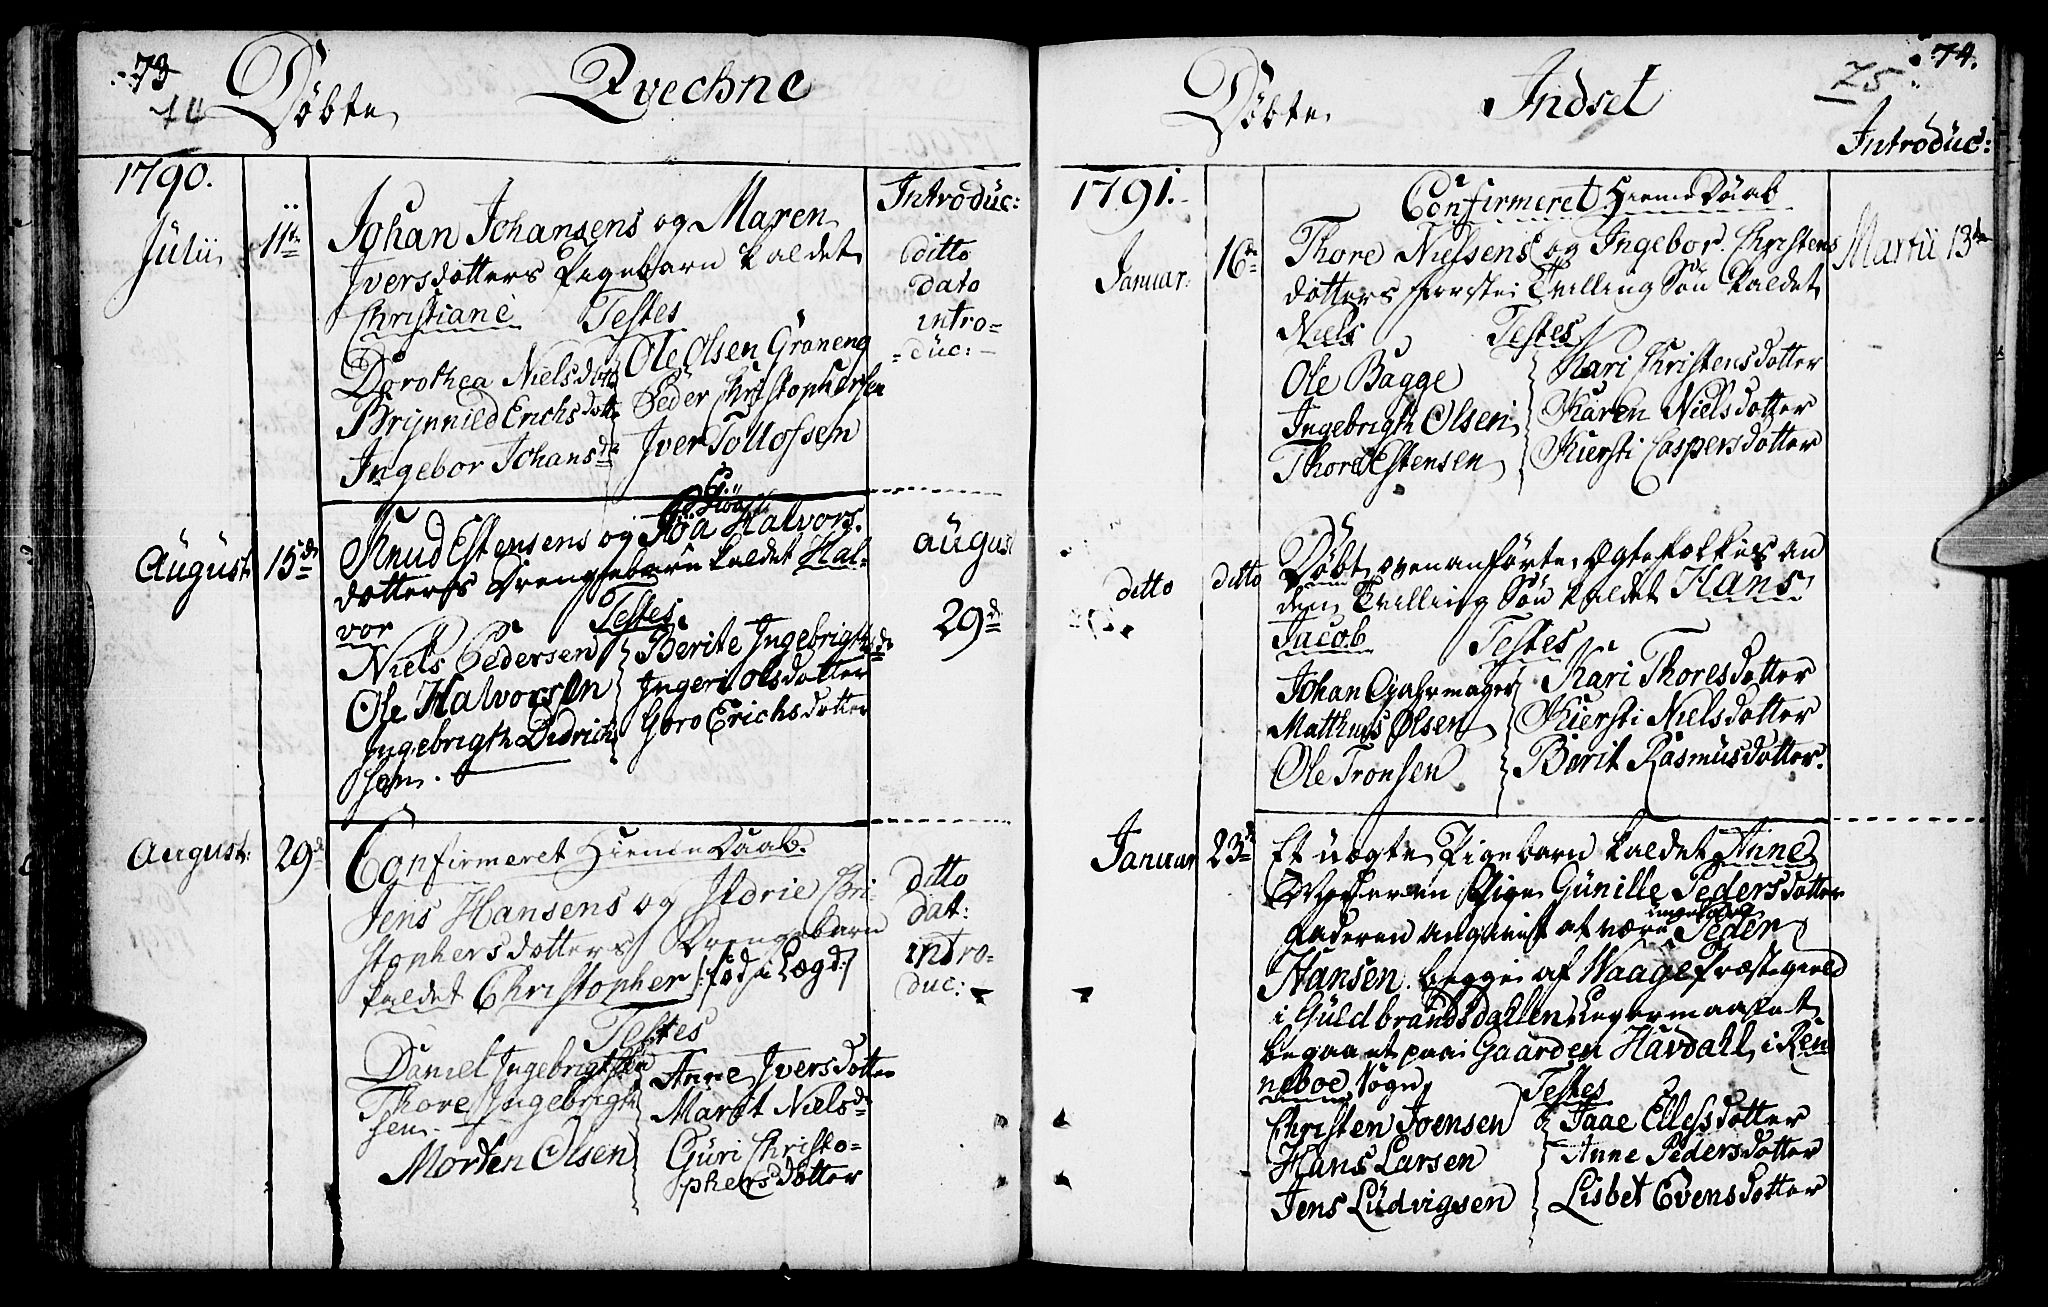 73
74
Døbte Qvechne
1790.
Introduc:
Julii 11te
Johan Johansens og Maren
Iversdotters Pigebarn kaldet
Christiane Testes
Dorothea Nielsdott
Brynnild Erichsdott
Ingebor Johansd
Ole Olsen Grøneng
Peder Christophersen
Iver Tollofsen
ditto
dato
intro=
=duc:
August 15de
Knud Estensens og Halvors
dotters Drengebarn kaldet Hal-
vor Testes
Niels Pedersen
Ole Halvorsen
Ingebrigth Didrich
sen.
Berite Ingebrigtsd
Ingeri Olsdotter
Goro Erichsdotter
august
29d
August: 29d
Confirmeret Hieme Daab.
Jens Hansens og Chri-
stophersdotters Drengebarn
kaldet Christopher /: fød i Lægd :/
Testes
Daniel Ingebrigtsen
Thore Ingebrigth
sen.
Morten Olsen
Anne Iversdotter
Marit Nielsd
Guri Christo=
phersdotter
ditto
dat:
intro-
duc:
74.
75
Døbte Indset
Introduc:
1791.
Januar: 16de
Confirmeret Hieme Daab
Thore Nielsens og Ingebor Christens
dotters første Tvilling Søn kaldet
Niels Testes
Ole Bagge
Ingebrigth Olsen
Thore Estensen
Kari Christensdotter
Karen Nielsdotter
Kiersti Caspersdotter
Martii 13de
ditto ditto
Døbt ovenanførte Ægtefolkes an
den Tvilling Søn kaldet Hans
Jacob Testes
Johan
Matthias Olsen
Ole Tronsen
Kari Thoresdotter
Kiersti Nielsdotter
Berit Rasmusdotter.
Januar 23de
Et uægte Pigebarn kaldet Anne
Moderen Pige Gunille Pedersdotter
Faderen angivet at være Peder
Hansen begge af Waage Præstegield
i Guldbrandsdahlen Leyermaalet
begaaet paa Gaarden Havdahl i Ren
neboe Sogn Testes
Christen Joensen
Hans Larsen
Jens Ludvigsen
Ellefsdotter
Anne Pedersdotter
Lisbet Evensdotter